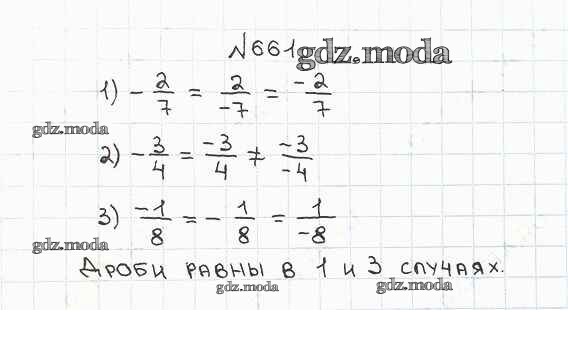 №661 gdz.moda
1) - 2/7 = 2/-7 = -2/7
gdz.moda
2) - 3/4 = -3/4 ≠ -3/-4
3) -1/8 = - 1/8 = 1/-8
gdz.moda
Дроби равны в 1 и 3 случаях.
gdz.moda gdz.moda